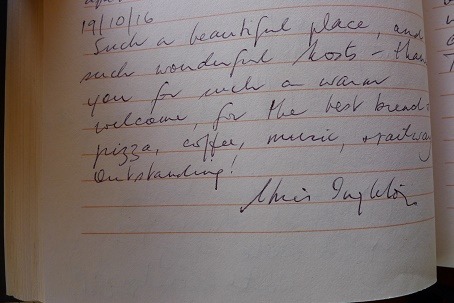 19/10/16
Such a beautiful place, and
such wonderful hosts - than
you for such a warm
welcome, for the best bread,
pizza, coffee, music, +railway
Outstanding!
Chris